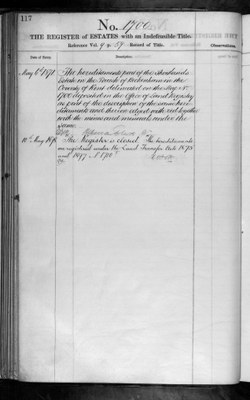 117
No. 1700
THE REGISTER of ESTATES, with an Indefeasible Title.
Reference Vol. 9 p. 57 Record of Title.
Observations.
Date of Entry.
Description.
May 6th 1871
The hereditaments part of the
Estate in the Parish of in the
County of Kent delineated on the Map No
1700 deposited in the Office of Land Registry
as part of the description of the same here-
ditaments and thereon edged with red together
with the mines and minerals under the
same.
The Register is closed. The hereditaments
are registered under the Land Transfer Acts 1875
and 1897